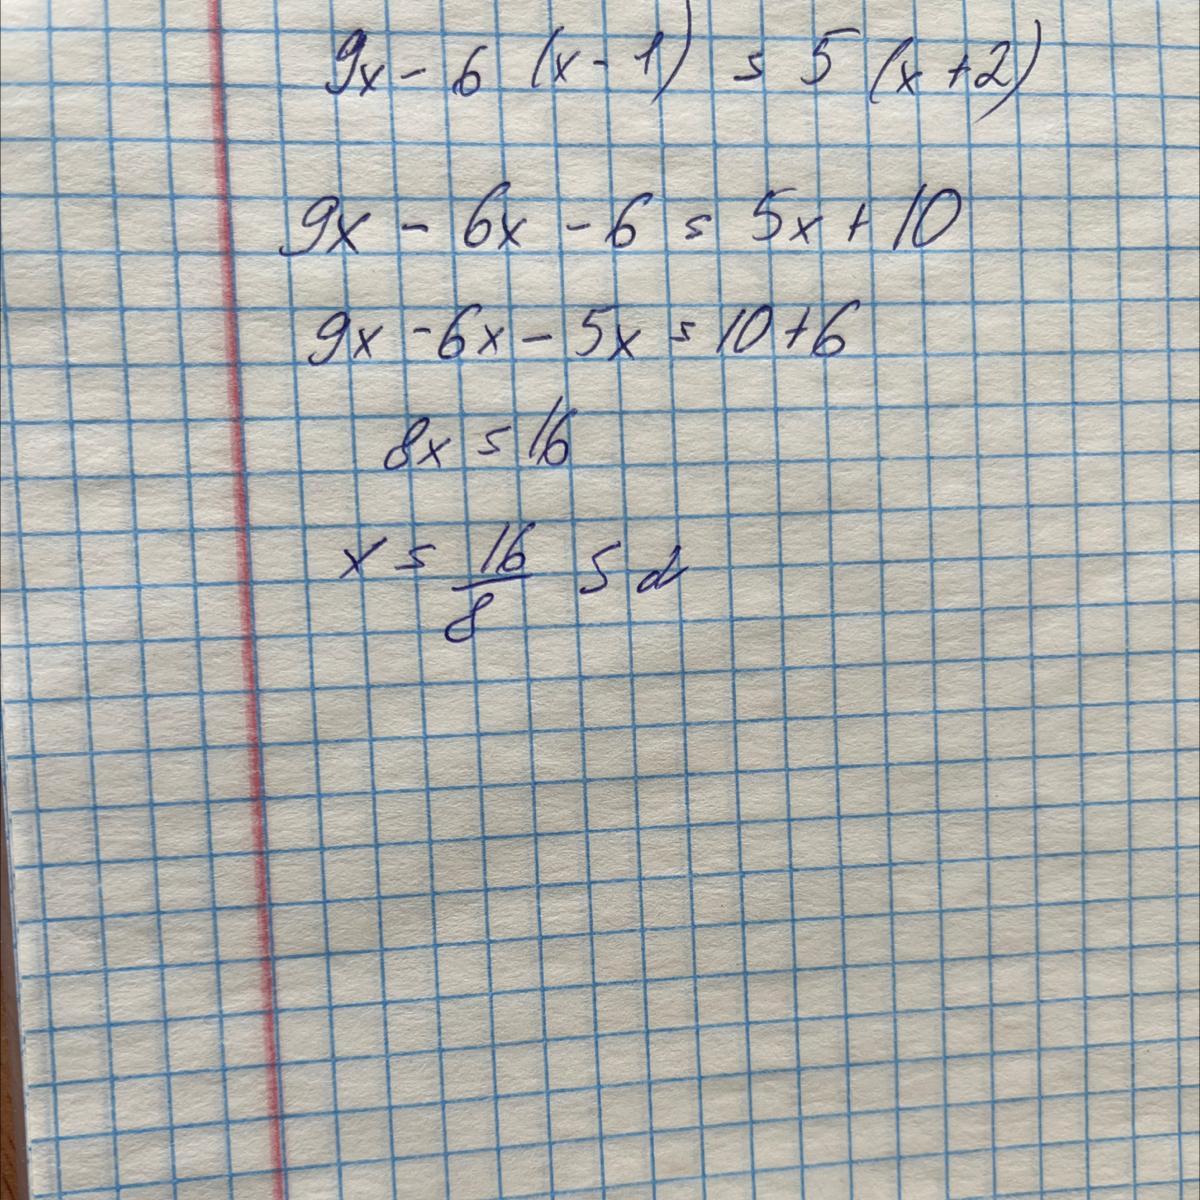 9x - 6 (x - 1) = 5 (x + 2)
9x - 6x - 6 = 5x + 10
9x - 6x - 5x = 10 + 6
8x = 16
x = 16/8 = 2